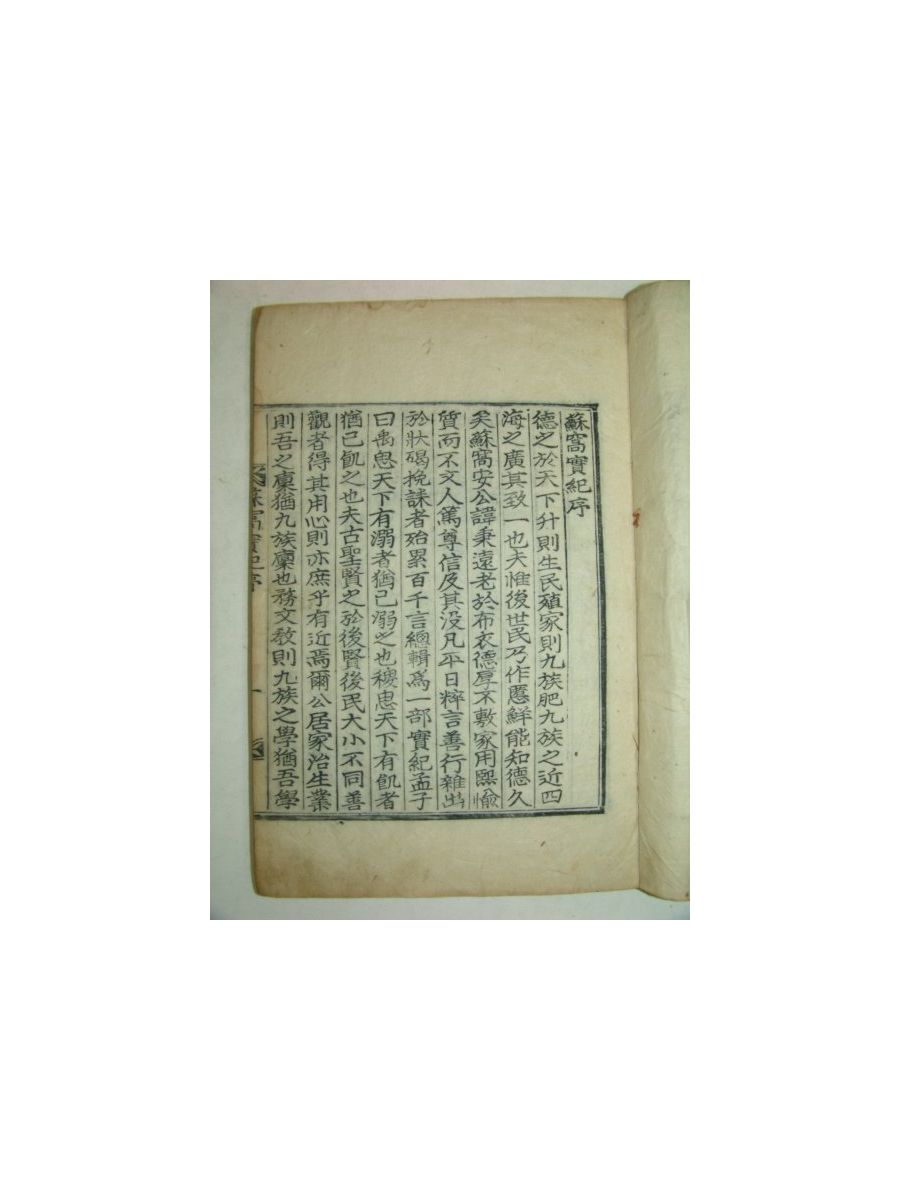 蘇窩實紀序
德之於天下升則生民殖家則九族肥九族之近四
海之廣其致一也夫惟後世民乃作慝鮮能知德久
矣蘇窩安公諱秉遠老於布衣德厚不敷家用熙愉
質而不文人篤尊信及其没凡平日粹言善行雜出
於狀碣挽誄者殆累百千言總輯爲一部實紀孟子
曰禹思天下有溺者猶己溺之也稷思天下有飢者
猶己飢之也夫古聖賢之於後賢後民大小不同善
觀者得其用心則亦庶乎有近焉爾公居家治生業
則吾之廩猶九族廩也務文教則九族之學猶吾學
蘇窩實紀序 一